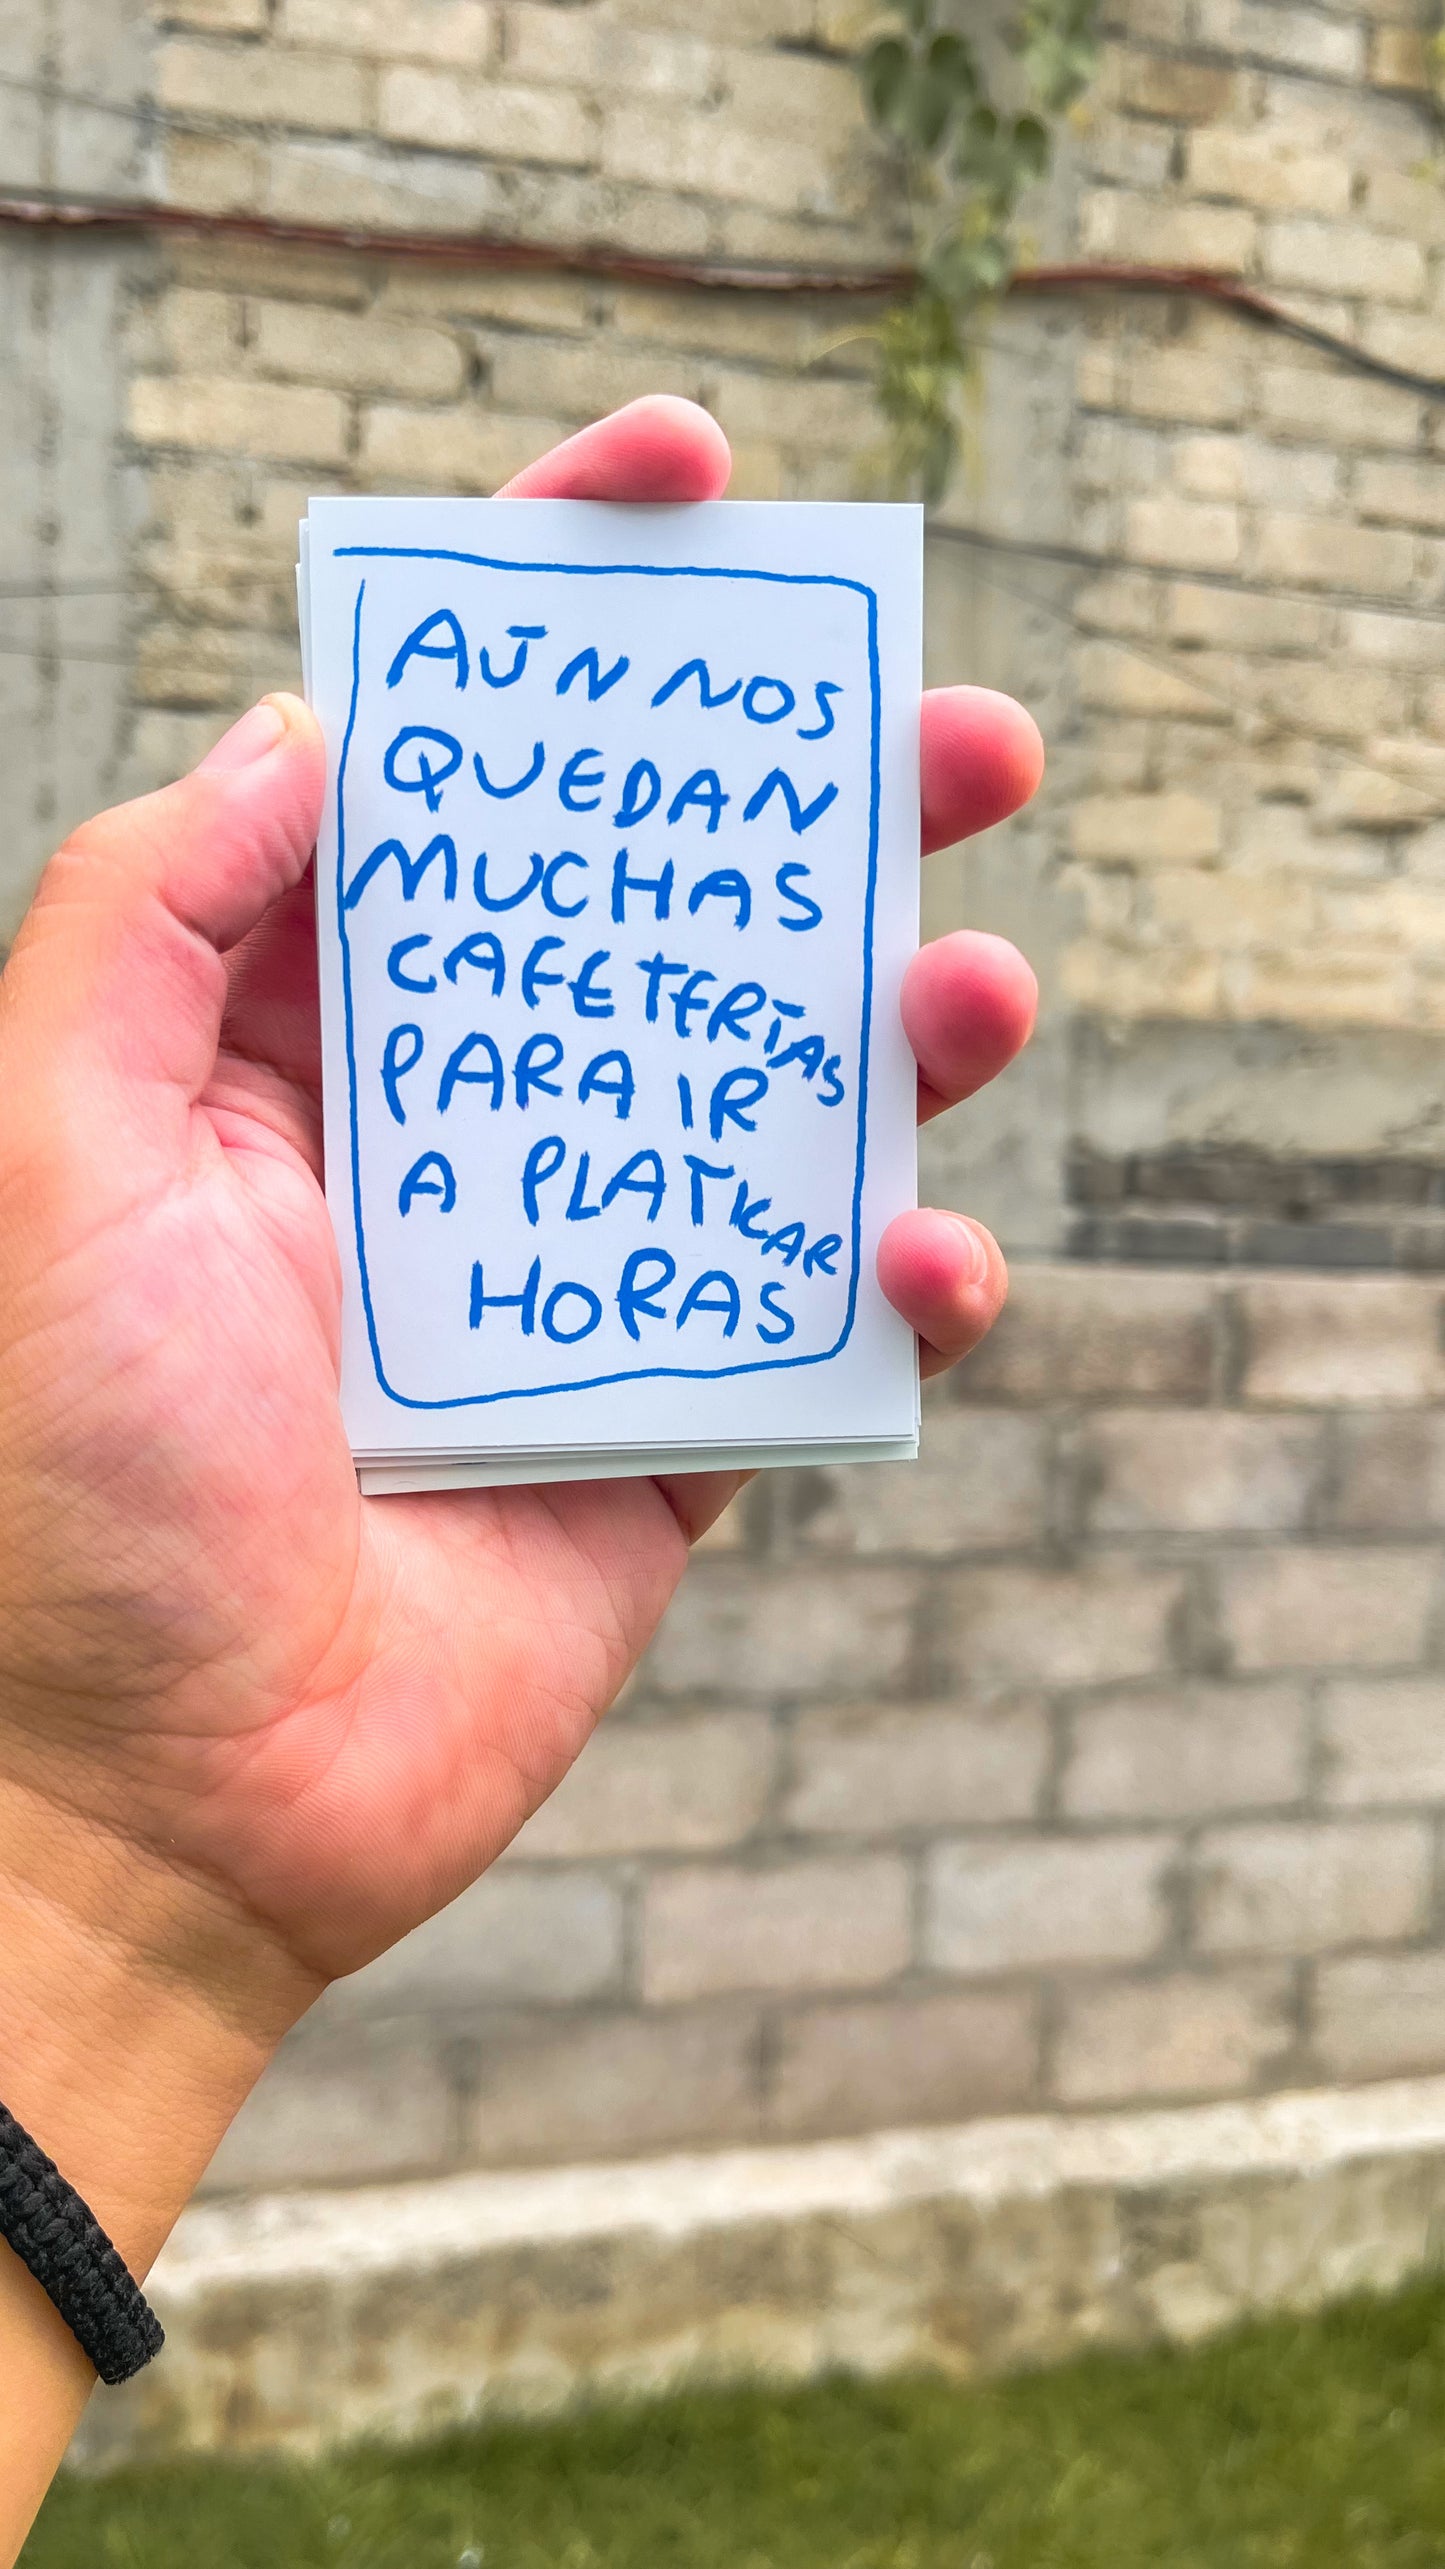 AÚN NOS
QUEDAN
MUCHAS
CAFETERÍAS
PARA IR
A PLATICAR
HORAS